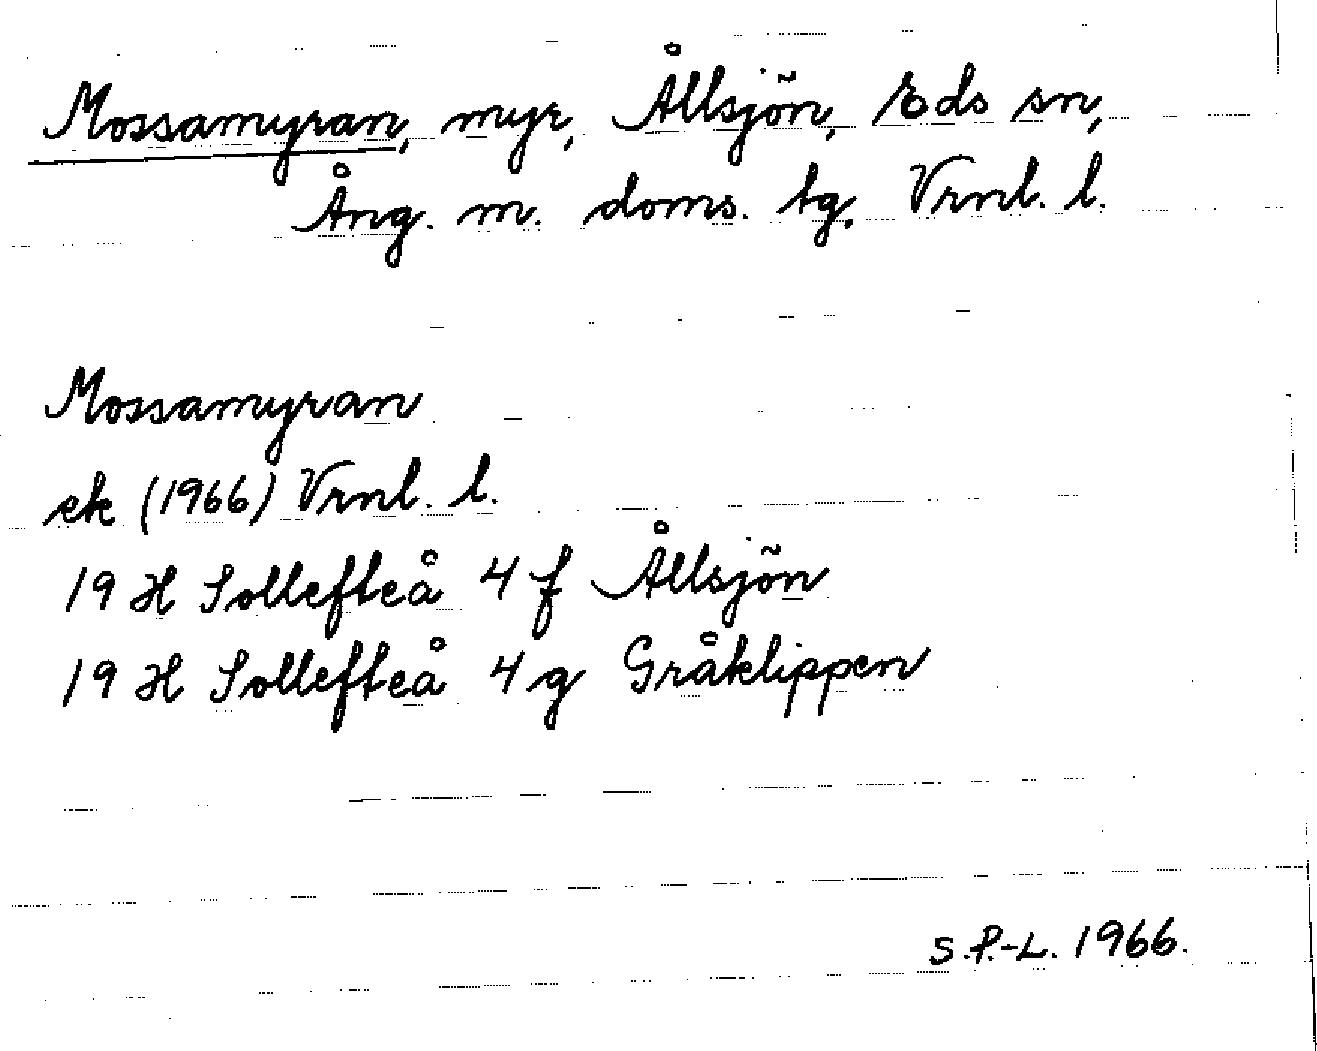 Mossamyran, myr, Ållsjön, Eds sn,
Ång. m. doms. tg. Vrnl. l.
Mossamyran
ek (1966) Vrnl. l.
19 H Sollefteå 4 f Ållsjön
19 H Sollefteå 4 g Gråklippen
S.P.-L. 1966.